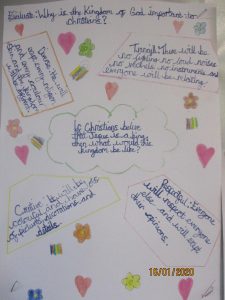 Evaluate: Why is the Kingdom of God important to
christians?
Tranquil: There will be
no fighting no loud noises
no vechels no instruments and
everyone will be relaxing
Diverse: He will
If Christians believe
that Jesus is a king,
then what would this
kingdom be like?
Creative: It will be
colourful and have lots
of pictures, decorations and
details.
Respectful: Everyone
will respect everyone
else and will respect
their opinions.
16/01/2020